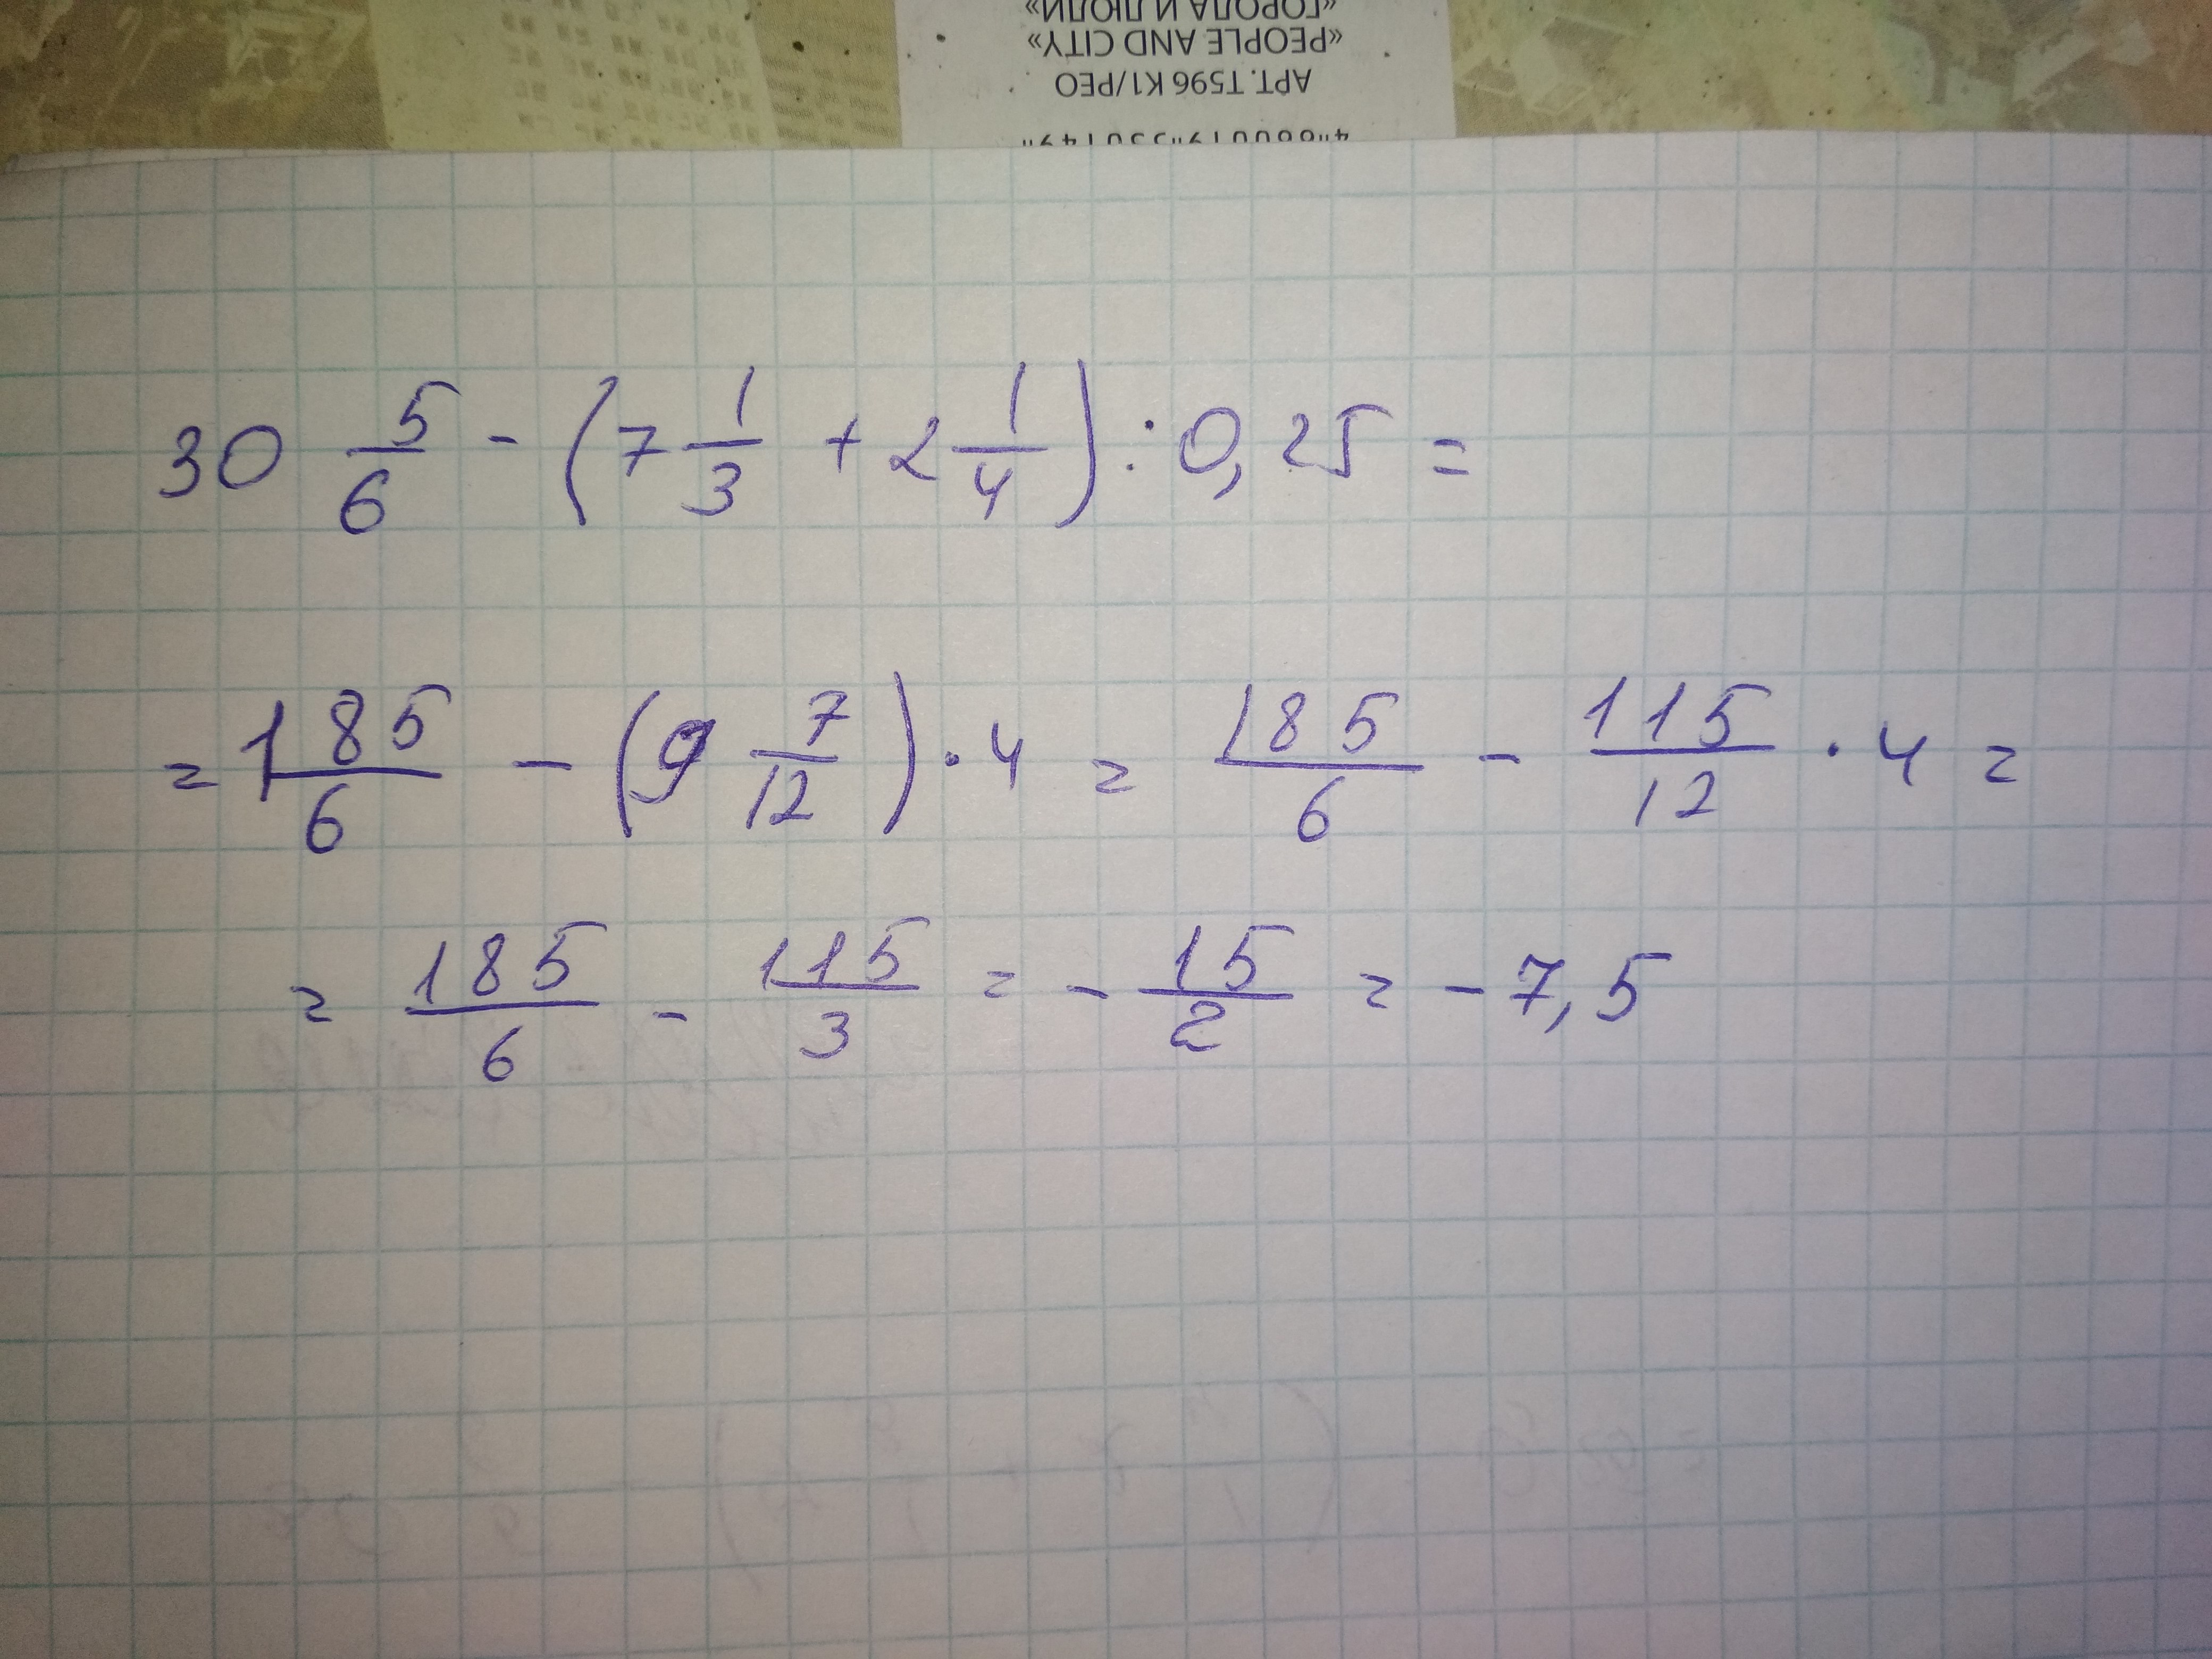 «ГОРОДА И ЛЮДИ»
«PEOPLE AND CITY»
АРТ. T596 K1/PEO
30 5/6 - (7 1/3 + 2 1/4) : 0,25 =
= 185/6 - (9 7/12) · 4 = 185/6 - 115/12 · 4 =
= 185/6 - 115/3 = - 15/2 = - 7,5